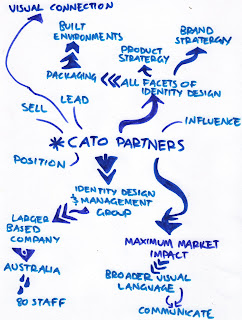 VISUAL CONNECTION
BUILT
ENVIRONMENTS
BRAND
STRATERGY
PRODUCT
STRATERGY
PACKAGING
ALL FACETS OF
IDENTITY DESIGN
SELL
LEAD
INFLUENCE
* CATO PARTNERS
POSITION
IDENTITY DESIGN
& MANAGEMENT
GROUP
LARGER
BASED
COMPANY
AUSTRALIA
80 STAFF
MAXIMUM MARKET
IMPACT
BROADER VISUAL
LANGUAGE
COMMUNICATE